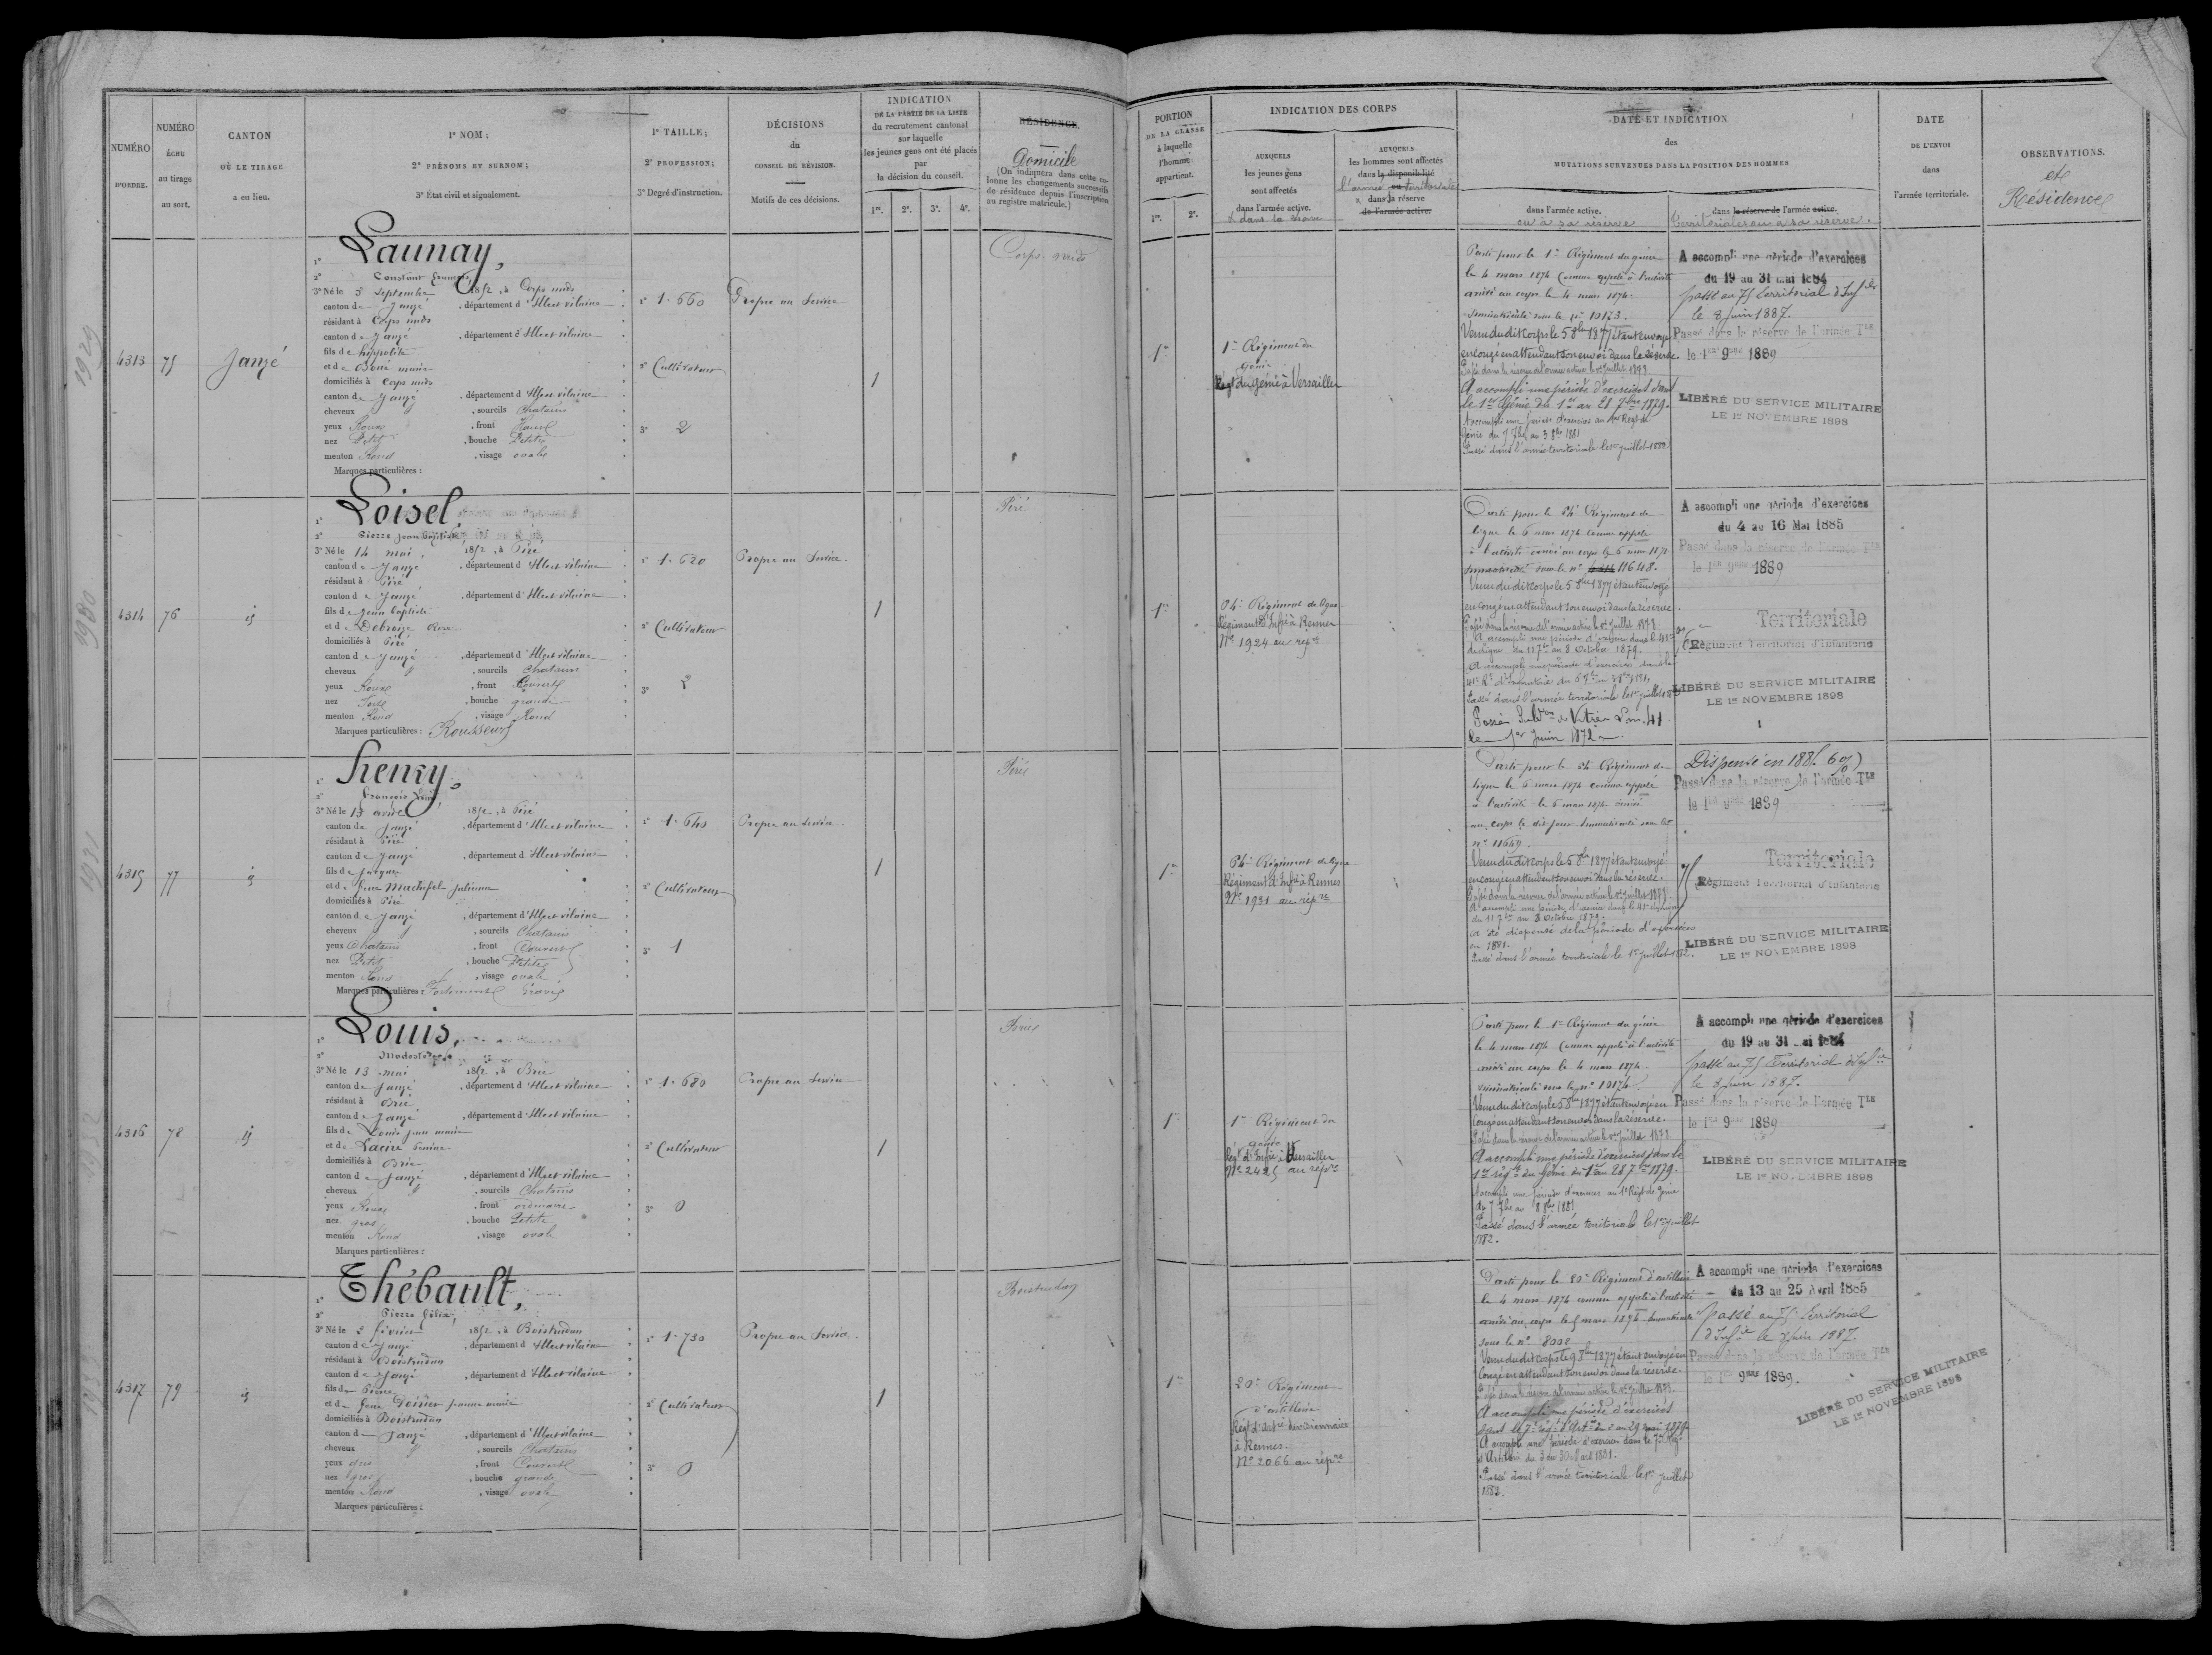 NUMÉRO
D'ORDRE.
NUMÉRO
ÉCHU
au tirage
au sort.
CANTON
OÙ LE TIRAGE
a eu lieu.
1º NOM;
2º PRÉNOMS ET SURNOM;
3º État civil et signalement.
1º TAILLE;
2º PROFESSION;
3º Degré d'instruction.
DÉCISIONS
du
CONSEIL DE RÉVISION.
Motifs de ces décisions.
INDICATION
DE LA PARTIE DE LA LISTE
du recrutement cantonal
sur laquelle
les jeunes gens ont été placés
par
la décision du conseil.
1re. 2e. 3e. 4e.
RÉSIDENCE.
Domicile
(On indiquera dans cette co-
lonne les changements successifs
de résidence depuis l'inscription
au registre matricule.)
PORTION
DE LA CLASSE
à laquelle
l'homme
appartient.
1re. 2e.
INDICATION DES CORPS
AUXQUELS
les jeunes gens
sont affectés
dans l'armée active.
& dans la réserve
AUXQUELS
les hommes sont affectés
dans la disponibilité
l'armée ou territoriale
& dans la réserve
de l'armée active.
DATE ET INDICATION
des
MUTATIONS SURVENUES DANS LA POSITION DES HOMMES
dans l'armée active.
ou à sa réserve
dans la réserve de l'armée active.
territoriale ou à sa réserve.
DATE
DE L'ENVOI
dans
l'armée territoriale.
OBSERVATIONS.
et
Résidence
4313 75 Janzé
1º Launay,
2º Constant François
3º Né le 3 Septembre 1852, à Corps nuds
canton de Janzé, département d'Ille et vilaine
résidant à Corps nuds
canton de Janzé, département d'Ille et vilaine
fils de hippolite
et de marie
domiciliés à Corps nuds
canton de Janzé, département d'Ille et vilaine
cheveux, sourcils Chatains
yeux Roux, front haut
nez Petit, bouche Petite
menton Rond, visage ovale
Marques particulières :
1º 1.660
2º Cultivateur
3º 2
Propre au Service
1
Corps nuds
1re
1er Régiment du
génie
Régt du génie à Versailles
Parti pour le 1er Régiment du génie
le 4 mars 1874 Comme appelé à l'activité
arrivé au corps le 4 mars 1874.
immatriculé sous le nº 10173.
Venu du dit Corps le 5 8bre 1877 étant envoyé
en congé en attendant son envoi dans la réserve.
Passé dans la réserve de l'armée active le 1er Juillet 1878
A accompli une période d'exercices dans
le 1er Génie du 1er au 28 7bre 1879.
A accompli une période d'exercices au 1er Régt de
Génie du 7bre au 3 8bre 1881
Passé dans l'armée territoriale le 1er juillet 1882
A accompli une période d'exercices
du 19 au 31 mai 1884
passé au 75 territorial d'Infie
le 8 juin 1887.
Passé dans la réserve de l'armée Tle
le 1er 9bre 1889
LIBÉRÉ DU SERVICE MILITAIRE
LE 1er NOVEMBRE 1898
4314 76 id
1º Loisel,
2º Pierre Jean Baptiste
3º Né le 14 mai, 1852, à Piré
canton de Janzé, département d'Ille et vilaine
résidant à Piré
canton de Janzé, département d'Ille et vilaine
fils de Jean Baptiste
et de Debroize Rose
domiciliés à Piré
canton de Janzé, département d'Ille et vilaine
cheveux, sourcils Chatains
yeux Roux, front Couvert
nez Fort, bouche grande
menton Rond, visage Rond
Marques particulières : Rousseurs
1º 1.620
2º Cultivateur
3º 2
Propre au Service.
1
Piré
1re
Régiment de ligne
Régiment d'Infie à Rennes
Nº 1924 au répre
Régiment de
ligne le 6 mars 1874 comme appelé
à l'activité arrivé au corps le 6 mars 1874
immatriculé sous le nº 11648.
Venu du dit corps le 5 8bre 1877 étant envoyé
en congé en attendant son envoi dans la réserve.
Passé dans la réserve de l'armée active le 1er Juillet 1878
A accompli une période d'exercice dans le 41e
de ligne du 11 7bre au 8 Octobre 1879.
A accompli une période d'exercices dans le
41e Rt d'Infanterie
Passé dans l'armée territoriale le 1er juillet
le 1er Juin 1872
A accompli une période d'exercices
du 4 au 16 Mai 1885
Passé dans la réserve de l'armée Tle
le 1er 9bre 1889
Territoriale
76e Régiment Territorial d'Infanterie
LIBÉRÉ DU SERVICE MILITAIRE
LE 1er NOVEMBRE 1898
4315 77 id
1º henry,
2º François
3º Né le 13 avril 1852, à Piré
canton de Janzé, département d'Ille et vilaine
résidant à Piré
canton de Janzé, département d'Ille et vilaine
fils de Jacques
et de feue Machefel Julienne
domiciliés à Piré
canton de Janzé, département d'Ille et vilaine
cheveux, sourcils Chatains
yeux Chatains, front Couvert
nez Petit, bouche Petite
menton Rond, visage ovale
Marques particulières : Fortement Gravé
1º 1.640
2º Cultivateur
3º 1
Propre au Service.
1
Piré
1re
Régiment de ligne
Régiment d'Infie à Rennes
Nº 1931 au répre
Régiment de
ligne le 6 mars 1874 comme appelé
à l'activité le 6 mars 1874 arrivé
au corps le dit jour immatriculé sous le
nº 11649.
Venu du dit corps le 5 8bre 1877 étant envoyé
en congé en attendant son envoi dans la réserve.
Passé dans la réserve de l'armée active le 1er Juillet 1878.
A accompli une période d'exercice dans le 41e de ligne
du 11 7bre au 8 Octobre 1879.
a été dispensé de la période d'exercices
en 1881.
Passé dans l'armée territoriale le 1er juillet 1882.
Dispensé en 1885
Passé dans la réserve de l'armée Tle
le 1er 9bre 1889
Territoriale
75 Régiment Territorial d'Infanterie
LIBÉRÉ DU SERVICE MILITAIRE
LE 1er NOVEMBRE 1898
4316 78 id
1º Louis,
2º Modeste
3º Né le 13 mai 1852, à Brie
canton de Janzé, département d'Ille et vilaine
résidant à Brie
canton de Janzé, département d'Ille et vilaine
fils de Louis jean marie
et de
domiciliés à Brie
canton de Janzé, département d'Ille et vilaine
cheveux, sourcils Chatains
yeux Roux, front ordinaire
nez gros, bouche Petite
menton Rond, visage ovale
Marques particulières :
1º 1.680
2º Cultivateur
3º 0
Propre au Service
1
1re
1er Régiment du
génie
Régt d'Infie à Versailles
Nº 2425 au répre
Parti pour le 1er Régiment du génie
le 4 mars 1874 Comme appelé à l'activité
arrivé au corps le 4 mars 1874.
immatriculé sous le nº 10174.
Venu du dit corps le 5 8bre 1877 étant envoyé en
Congé en attendant son envoi dans la réserve.
Passé dans la réserve de l'armée active le 1er Juillet 1878
A accompli une période d'exercices dans le
1er régt du Génie du 1er au 28 7bre 1879.
A accompli une période d'exercices au 1er Régt de Génie
du 7 7bre au 8bre 1881
Passé dans l'armée territoriale le 1er juillet
1882.
A accompli une période d'exercices
du 19 au 31 mai 1884
passé au 75 Territorial d'Infie
le 8 juin 1887.
Passé dans la réserve de l'armée Tle
le 1er 9bre 1889
LIBÉRÉ DU SERVICE MILITAIRE
LE 1er NOVEMBRE 1898
4317 79 id
1º Thébault,
2º Pierre Félix,
3º Né le 2 février 1852, à Boistrudan
canton de Janzé, département d'Ille et vilaine
résidant à Boistrudan
canton de Janzé, département d'Ille et vilaine
fils de Pierre
et de feue jeanne marie
domiciliés à Boistrudan
canton de Janzé, département d'Ille et vilaine
cheveux, sourcils Chatains
yeux gris, front Couvert
nez gros, bouche grande
menton Rond, visage ovale
Marques particulières :
1º 1.730
2º Cultivateur
3º 0
Propre au Service.
1
Boistrudan
1re
20e Régiment
d'artillerie
Régt d'Artie divisionnaire
à Rennes.
Nº 2066 au répre
Parti pour le 20e Régiment d'artillerie
le 4 mars 1874 comme appelé à l'activité
arrivé au corps le 5 mars 1874 immatriculé
sous le nº
Venu du dit corps le 9 8bre 1877 étant envoyé en
Congé en attendant son envoi dans la réserve.
Passé dans la réserve de l'armée active le 1er Juillet 1878.
A accompli une période d'exercices
dans le 7e régt d'Artie du 2 au 29 mai 1879.
A accompli une période d'exercices dans le 7e Régt
d'Artillerie du 3 au 30 1881.
Passé dans l'armée territoriale le 1er juillet
1883.
A accompli une période d'exercices
du 13 au 25 Avril 1885
passé au 75 territorial
d'Infie le juin 1887.
Passé dans la réserve de l'armée Tle
le 1er 9bre 1889.
LIBÉRÉ DU SERVICE MILITAIRE
LE 1er NOVEMBRE 1898